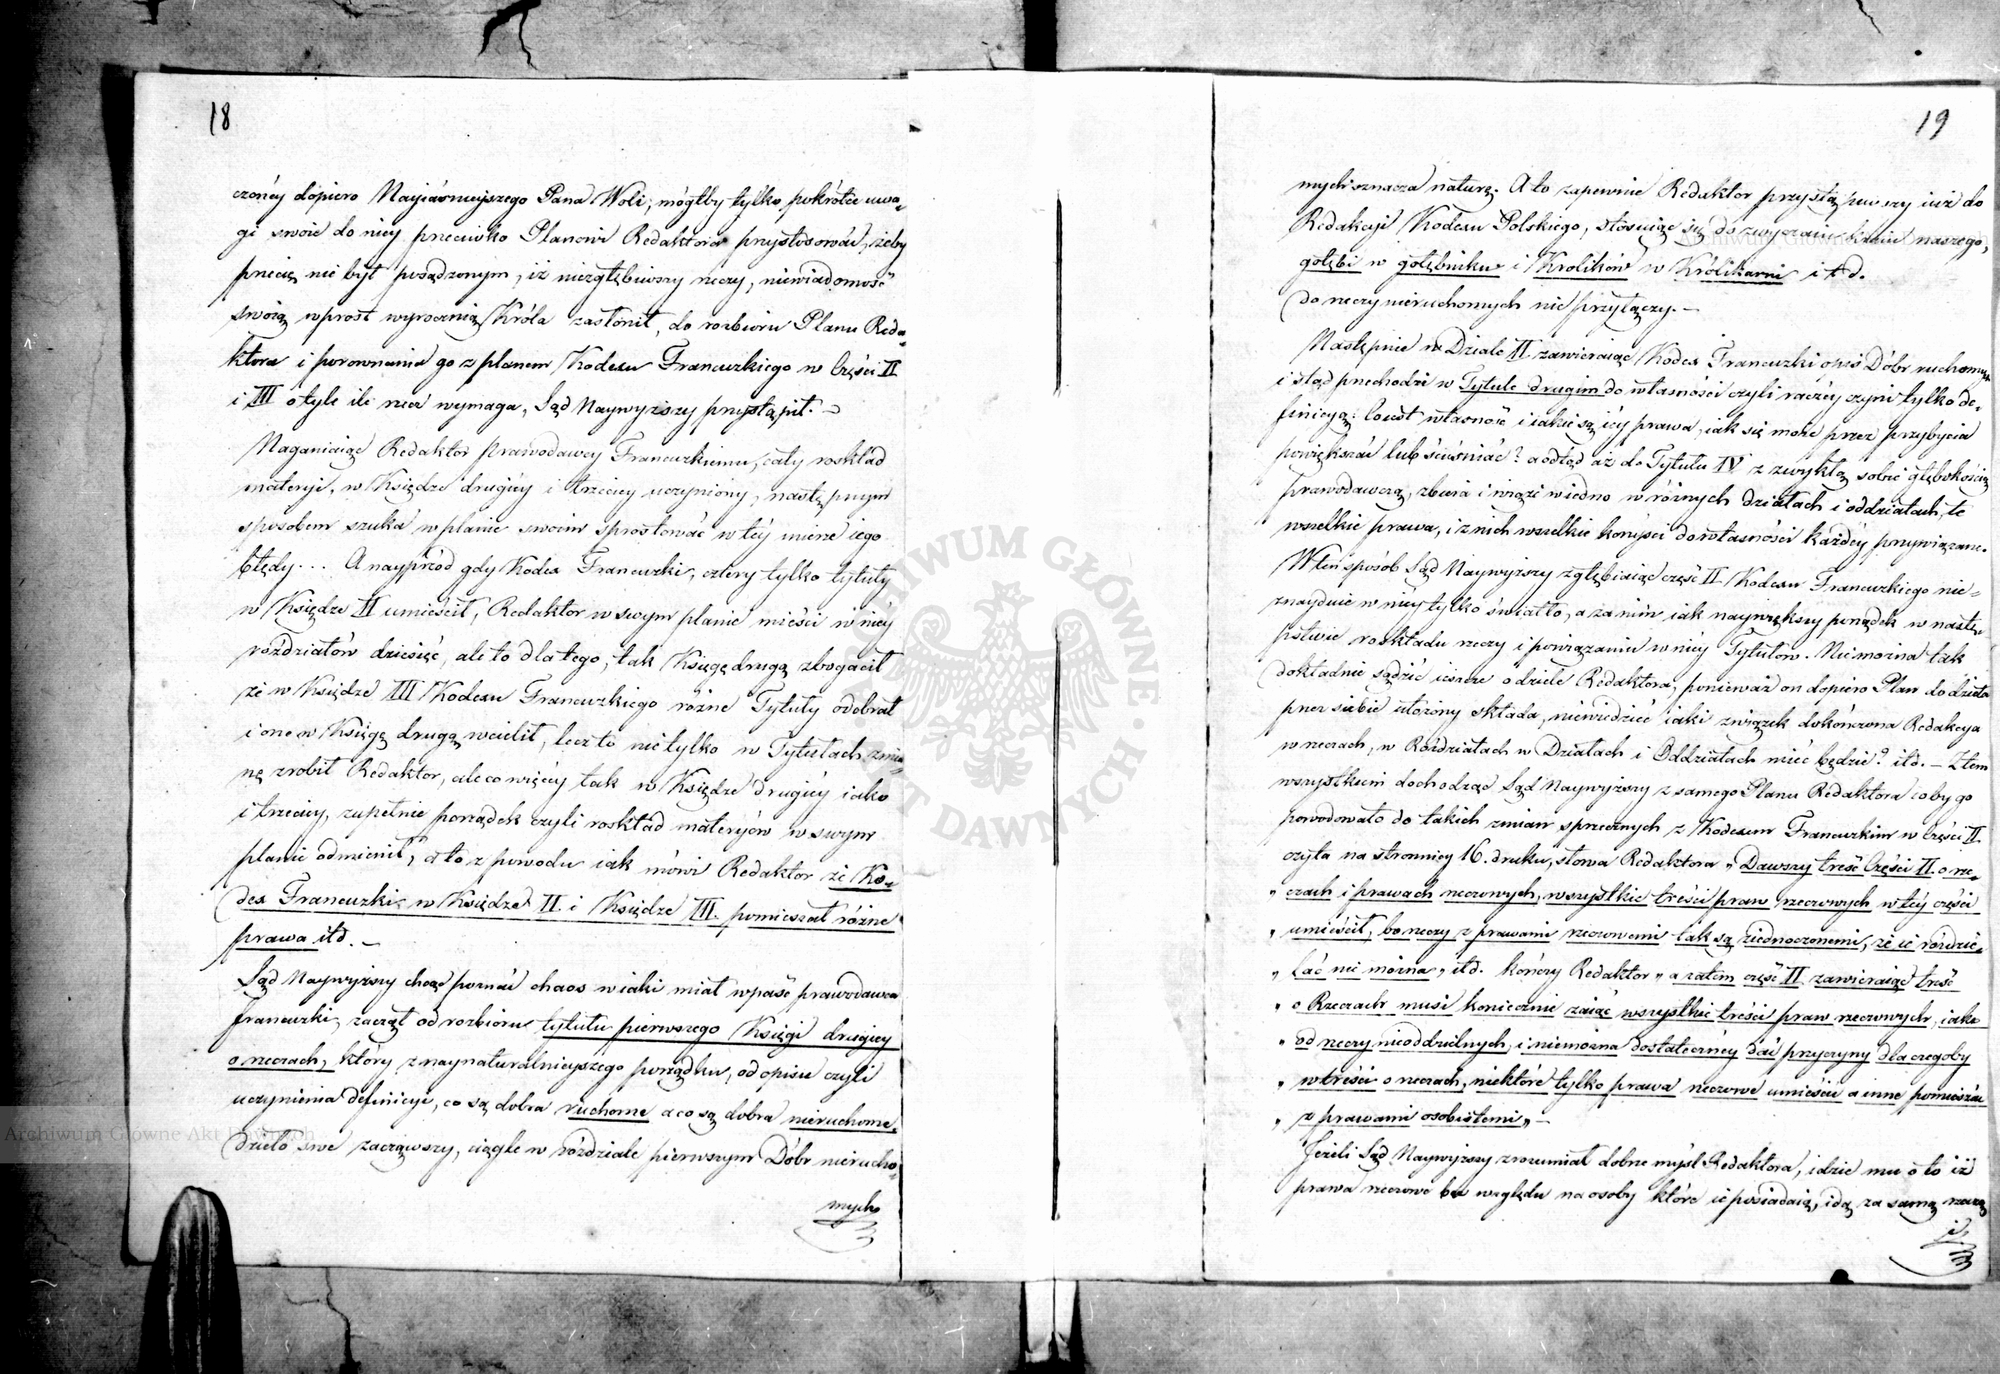 18
czonéy dopiero Nayiásnieyszego Pana Woli; mógłby tylko pokrótce uwa-
gi swoie do niey przeciwko Planowi Redaktora przystosować, żeby
przecię nie był posądzonym, iż niezgłębiwszy rzeczy, niewiadomość
swoią wprost wyrocznią Króla zasłonił, do rozbioru Planu Reda-
ktora i porownania go z planem Kodexu Francuzkiego w Części II
i III o tyle ile rzecz wymaga, Sąd Naywyższy przystąpił. —
Naganiaiąc Redaktor prawodawcy Francuzkiemu, cały roskład
materyi, w Księdze drugiey i trzeciey uczyniony, następnym
sposobem szuka w planie swoim sprostować w téy mierze iego
błędy... A nayprzód gdy Kodex Francuzki, cztery tylko tytuły
w Księdze II umieścił, Redaktor w swym planie mieści w niéy
rózdziałów dziesięć, ale to dla tego, tak Księgę drugą zbogacił
że w Księdze III Kodexu Francuzkiego różne Tytuły odebrał
i one w Księgę drugą wcielił, lecz to nie tylko w Tytułach zmia-
nę zrobił Redaktor, ale co więcéy tak w Księdze drugiéy iako
i trzeciey, zupełnie porządek czyli roskład materyów w swym
planie odmienił, a to z powodu iak mówi Redaktor że Ko-
dex Francuzki w Księdze II i Księdze III. pomieszał różne
prawa itd. —
Sąd Naywyższy chcąc poznać chaos w iaki miał wpaść prawodawca
francuzki, zaczął od rozbioru tytułu pierwszego Księgi drugiey
o rzeczach, który z naynaturalnieyszego porządku, od opisu czyli
uczynienia definicyi, co są dobra ruchome a co są dobra nieruchome,
dzieło swe zacząwszy, ciągle w rózdziale pierwszym Dóbr nierucho-
mych
19
mych oznacza naturę. A to zapewnie Redaktor przystąpiwszy iuż do
Redakcyi Kodexu Polskiego, stósuiąc się do zwyczaiu kraiu naszego,
gołębi w gołębniku i Krolików w Królikarni i t d.
do rzeczy nieruchomych nie przyłączy. —
Następnie w Dziale II zawieraiąc Kodex Francuzki opis Dóbr ruchomych
i stąd przechodzi w Tytule drugim do własności czyli raczéy czyni tylko de-
finicyą: co iest własność i iakie są iéy prawa, iak się może przez przybycia
powiększać lub ścieśniać? a odtąd aż do Tytułu IV z zwykłą sobie głębokością
prawodawczą, zbiera i wiąże wiedno w różnych działach i oddziałach, te
wszelkie prawa, i z nich wszelkie korzyści do własności każdéy przywiązane.
W ten sposób Sąd Naywyższy zgłębiaiąc część II. Kodexu Francuzkiego nie-
znayduie w niéy tylko światło, a zanim iak naywiększy porządek w nastę-
pstwie roskładu rzeczy i powiązaniu w niéy Tytułów. Nie można tak
dokładnie sądzić ieszcze o dziele Redaktora, ponieważ on dopiero Plan do dzieła
przez siebie ułożony składa, niewiedzieć iaki związek dokończona Redakcya
w rzeczach, w Rózdziałach w Działach i Oddziałach mieć będzie? itd. — Z tem
wszystkiem dochodząc Sąd Naywyższy z samego Planu Redaktora co by go
powodowało do takich zmian sprzecznych z Kodexem Francuzkim w Części II.
czyta na stronnicy 16. druku, słowa Redaktora „Dawszy treść Części II. o rze-
„ czach i prawach rzeczowych, wszystkie treści praw rzeczowych w téy części
„ umieścił, bo rzeczy z prawami rzeczowemi tak są ziednoczonemi, że ie rózdzie-
„ lać nie można„ itd. kończy Redaktor „a zatem część II zawieraiąc treść
„ o Rzeczach musi koniecznie zaiąć wszystkie treści praw rzeczowych, iako
„ od rzeczy nieoddzielnych, i niemożna dostatecznéy dać przyczyny dla czegoby
„ w treści o rzeczach, niektóre tylko prawa rzeczowe umieścić a inne pomieszać
„ z prawami osobistemi„ —
Jeżeli Sąd Naywyższy zrozumiał dobrze myśl Redaktora, idzie mu o to iż
prawa rzeczowe bez względu na osoby które ie posiadaią, idą za samą rzeczą
i